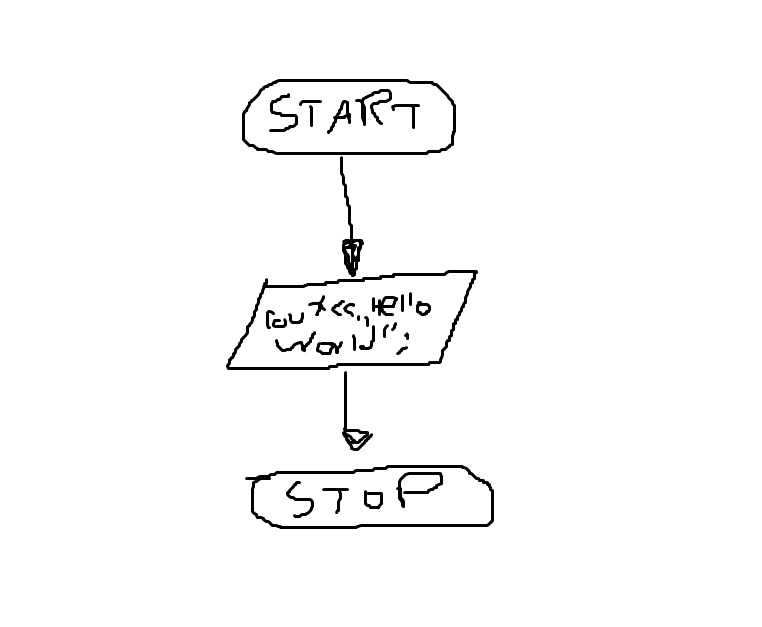 START
cout<<„Hello
World";
STOP